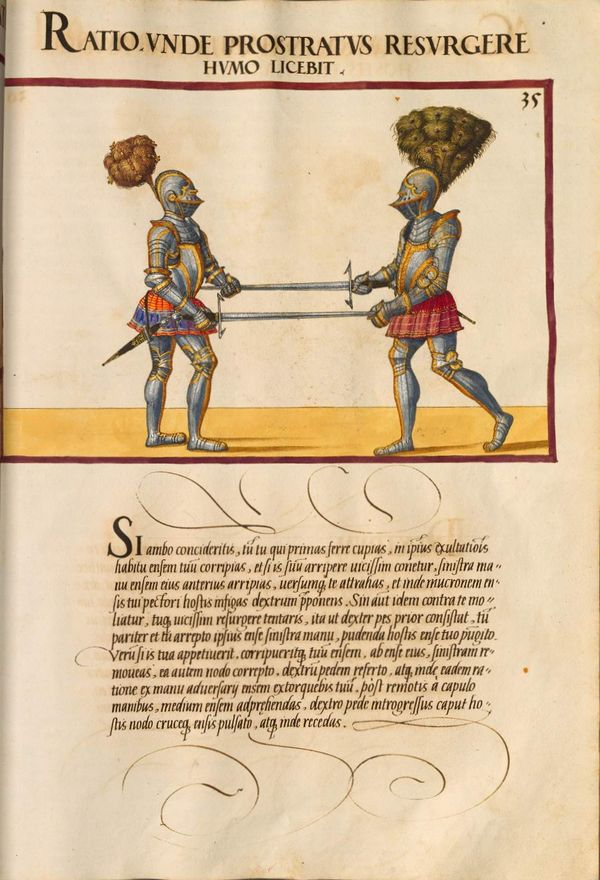 RATIO, VNDE PROSTRATVS RESVRGERE
HVMO LICEBIT.
35
SI ambo concideritis, tũ tu qui primas ferre cupias, in ipsius exultatiõis
habitu ensem tuũ corripias, et si is suũ arripere uicissim conetur, sinistra ma-
nu ensem eius anterius arripias, uersumq́; te attrahas, et inde mucronem en-
sis tui pectori hostis infigas dextrum p̃ponens. Sin aũt idem contra te mo-
liatur, tuq́; uicissim resurgere tentaris, ita ut dexter pes prior consistat, tũ
pariter et tu arrepto ipsius ense sinistra manu, pudenda hostis ense tuo pũgito.
Verũ si is tua appetiuerit, corripueritq́; tuũ ensem, ab ense eius, sinistram re-
moueas, ea autem nodo correpto, dextrũ pedem referto, atq́; inde eadem ra-
tione ex manu aduersarij ensem extorquebis tuũ, põst remotis a capulo
manibus, medium ensem adprẹhendas, dextro pede introgressus caput ho-
stis nodo cruceq́; ensis pulsato, atq́; inde recedas.